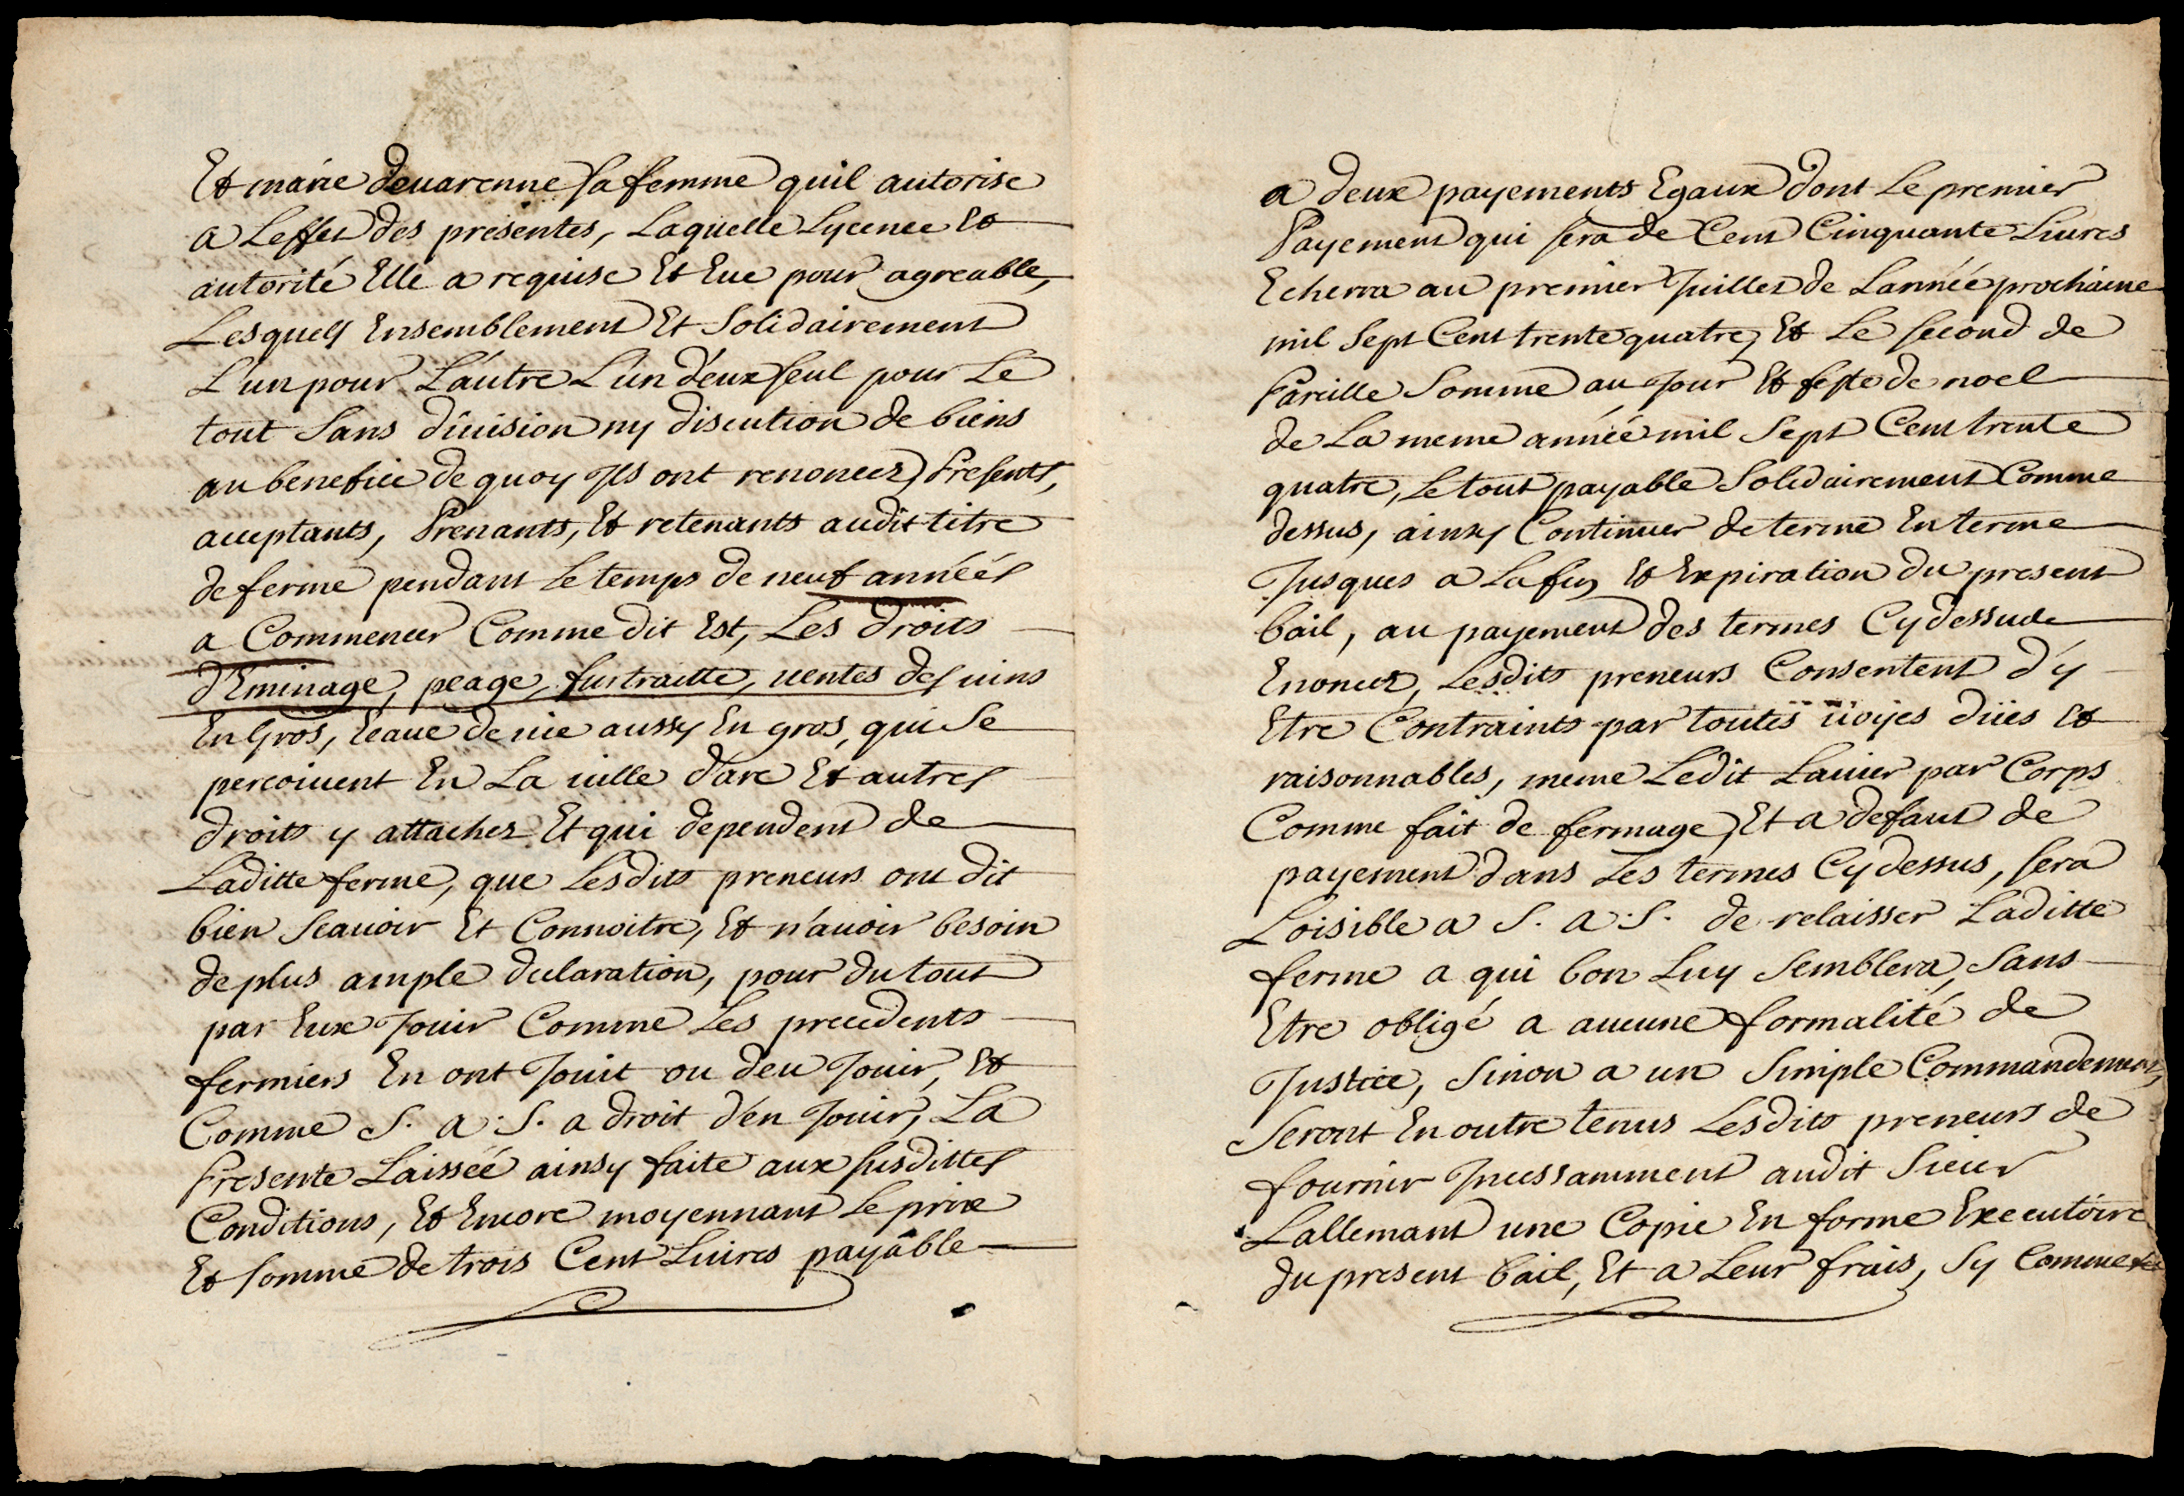 Et marie deuarenne sa femme quil autorise
a Leffet des presentes, Laquelle Lycence et
autorité Elle a requise Et Eue pour agreable,
Lesquels Ensemblement Et Solidairement
L'un pour L'autre L'un d'eux seul pour Le
tout Sans diuision ny discution de biens
au benefice de quoy Ils ont renoncez, Presents,
acceptants, Prenants, Et retenants audit titre
de ferme pendant Le temps de neuf années
a Commencer Comme dit Est, Les droits
d'Eminage, peage, furtraitte, uentes des uins
En Gros, Eaue de uie aussy En gros, qui Se
percoiuent En La uille d'arc Et autres
droits y attachez Et qui dependent de
Laditte ferme, que Lesdits preneurs ont dit
bien Scauoir Et Connoitre, Et n'auoir besoin
de plus ample declaration, pour du tout
par Eux Jouir Comme Les precedents
fermiers En ont Jouit ou deu Jouir, Et
Comme S. A. S. a droit d'en Jouir, La
Presente Laissée ainsy faite aux susdittes
Conditions, Et Encore moyennant Le prix
Et somme de trois Cent Liures payable
a deux payements Egaux dont Le premier
Payement qui sera de Cent Cinquante Liures
Echerra au premier Juillet de L'année prochaine
mil Sept Cent trente quatre, Et Le second de
Pareille Somme au Jour Et feste de noel
de La meme année mil Sept Cent trente
quatre, Le tout payable Solidairement Comme
dessus, ainsy Continuer de terme En terme
Jusques a La fin Et Expiration du present
bail, au payement des termes Cydessude
Enoncez, Lesdits preneurs Consentent d'y
Etre Contraints par toutes uoyes dües et
raisonnables, meme Ledit Lauier par Corps
Comme fait de fermage, Et a defaut de
payement dans Les termes Cydessus, sera
Loisible a S. A. S. de relaisser Laditte
ferme a qui bon Luy Semblera, Sans
Etre obligé a aucune formalité de
Justice, Sinon a un Simple Commandement,
Seront En outre tenus Lesdits preneurs de
fournir Incessamment audit Sieur
Lallemant une Copie En forme Executoire
du present bail, Et a Leur frais, Sy Comme